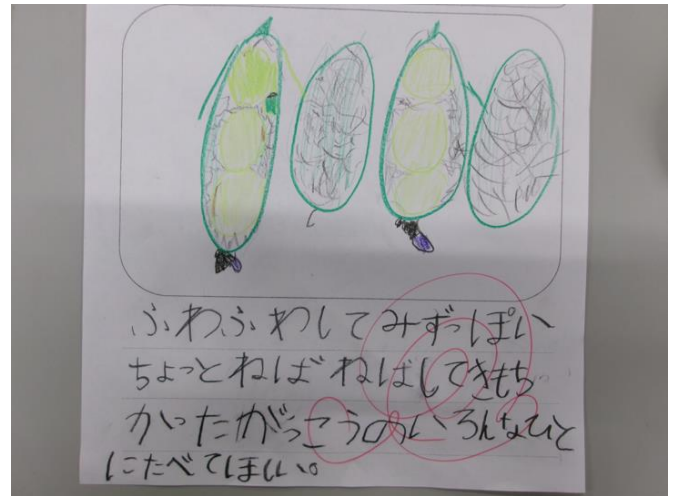 ふわふわしてみずっぽい
ちょっとねばねばしてきもち
かったがっこうのいろんなひと
にたべてほしい。